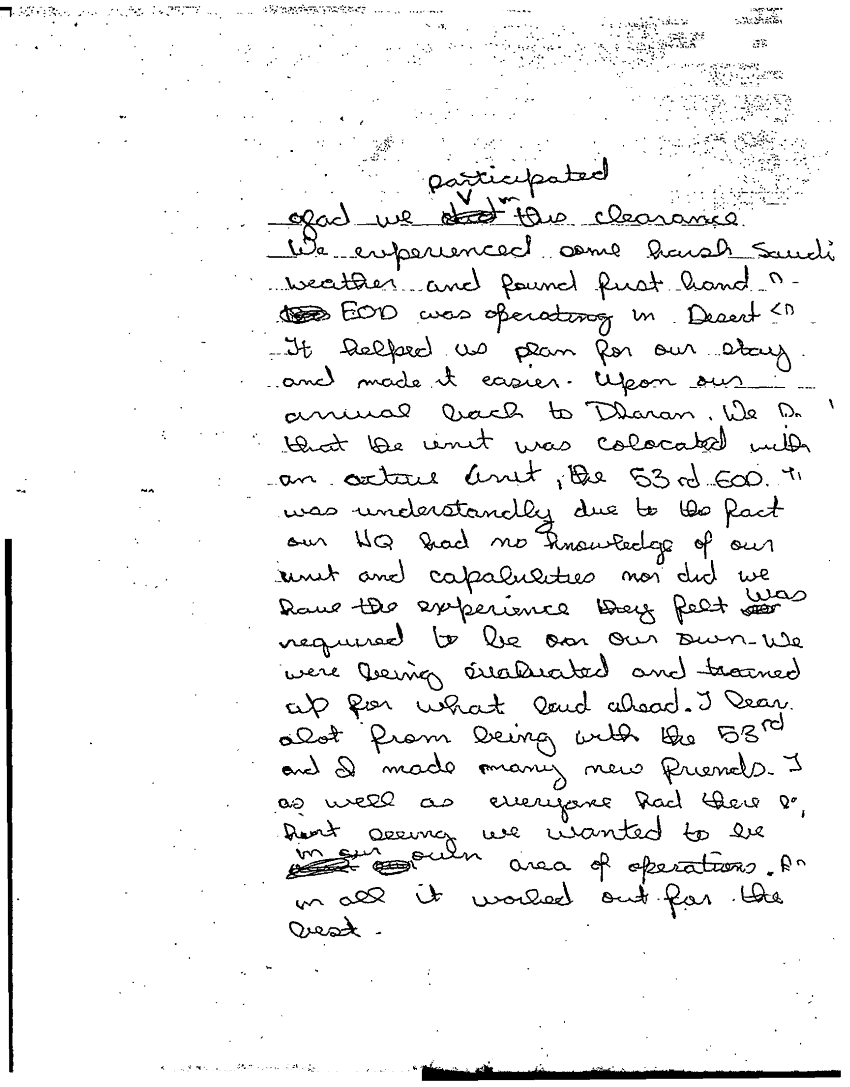 participated
glad we in this clearance.
We experienced some harsh Saudi
weather and found first hand
EOD was operating in Desert
It helped us plan for our stay
and made it easier. Upon our
arrival back to Dharan. We
that the unit was colocated with
an active unit, the 53rd EOD.
was understandly due to the fact
our HQ had no knowledge of our
unit and capabilities nor did we
have the experience they felt was
required to be on our own. We
were being evaluated and trained
up for what laid ahead. I
alot from being with the 53rd
and I made many new friends. I
as well as everyone had there
hurt seeing we wanted to be
in our own area of operations.
in all it worked out for the
best.